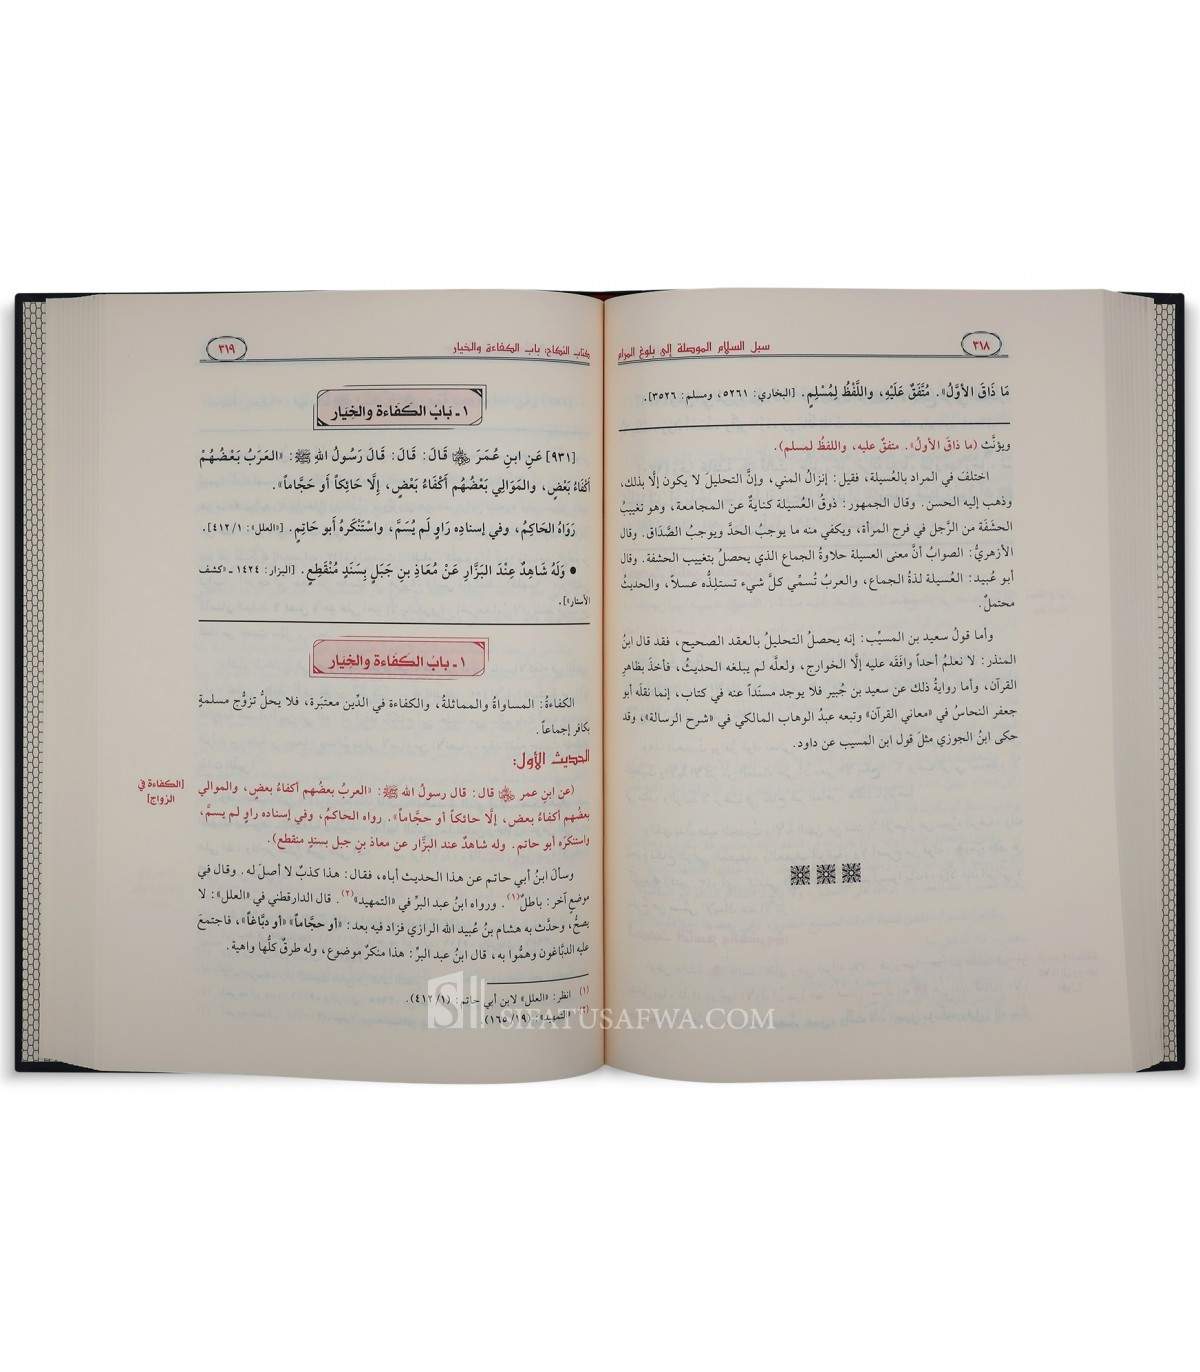 ٣١٨
سبل السلام الموصلة إلى بلوغ المرام
مَا ذَاقَ الأَوَّلُ». مُتَّفَقٌ عَلَيْهِ، واللَّفْظُ لِمُسْلِمٍ. [البخاري: ٥٢٦١، ومسلم: ٣٥٢٦].
ويؤنَّث (ما ذاقَ الأولُ». متفقٌ عليه، واللفظُ لمسلم).
اختلفَ في المراد بالعُسيلة، فقيل: إنزالُ المني، وإنَّ التحليلَ لا يكون إلَّا بذلك،
وذهب إليه الحسن. وقال الجمهور: ذوقُ العُسيلة كنايةٌ عن المجامعة، وهو تغييبُ
الحشَفَة من الرَّجل في فرج المرأة، ويكفي منه ما يوجبُ الحدَّ ويوجبُ الصَّدَاق. وقال
الأزهريُّ: الصوابُ أنَّ معنى العسيلة حلاوةُ الجماع الذي يحصلُ بتغييب الحشفة. وقال
أبو عُبيد: العُسيلة لذةُ الجماع، والعربُ تُسمِّي كلَّ شيء تستلِذُّه عسلاً، والحديثُ
محتملٌ.
وأما قولُ سعيد بن المسيِّب: إنه يحصلُ التحليلُ بالعقد الصحيح، فقد قال ابنُ
المنذر: لا نعلمُ أحداً وافَقَه عليه إلَّا الخوارج، ولعلَّه لم يبلغه الحديثُ، فأخذَ بظاهرِ
القرآن، وأما روايةُ ذلك عن سعيد بن جُبير فلا يوجد مسنَداً عنه في كتاب، إنما نقلَه أبو
جعفر النحاسُ في «معاني القرآن» وتبعه عبدُ الوهاب المالكي في «شرح الرسالة»، وقد
حكى ابنُ الجوزي مثلَ قول ابن المسيب عن داود.
كتاب النكاح: باب الكفاءة والخيار
٣١٩
١ - بَابُ الكَفَاءة والخِيَار
[٩٣١] عَنِ ابنِ عُمَرَ ﵄ قَالَ: قَالَ رَسُولُ اللهِ ﷺ: «العَرَبُ بَعْضُهُمْ
أَكْفَاءُ بَعْضٍ، والمَوَالِي بَعْضُهُم أَكْفَاءُ بَعْضٍ، إِلَّا حَائِكاً أَو حَجَّاماً».
رَوَاهُ الحَاكِمُ، وفي إسنادِه رَاوٍ لَم يُسَمَّ، واسْتَنْكَرَهُ أَبو حَاتِمٍ. [«العلل»: ٤١٢/١].
● وَلَهُ شَاهِدٌ عِنْدَ البَزَّارِ عَنْ مُعَاذِ بنِ جَبَلٍ بِسَنَدٍ مُنْقَطِعٍ. [البزار: ١٤٢٤ - «كشف
الأستار»].
١ - بَابُ الكَفَاءة والخِيَار
الكفاءةُ: المساواةُ والمماثلةُ، والكفاءة في الدِّين معتبَرة، فلا يحلُّ تزوُّج مسلمةٍ
بكافر إجماعاً.
الحديث الأول:
[الكفاءة في
الزواج]
(عن ابنِ عمر ﵄ قال: قال رسولُ الله ﷺ: «العربُ بعضُهم أكفاءُ بعضٍ، والموالي
بعضُهم أكفاءُ بعض، إلَّا حائكاً أو حجَّاماً». رواه الحاكمُ، وفي إسناده راوٍ لم يسمَّ،
واستنكرَه أبو حاتم. وله شاهدٌ عند البزَّار عن معاذ بنِ جبل بسندٍ منقطع).
وسألَ ابنُ أبي حاتم عن هذا الحديث أباه، فقال: هذا كذبٌ لا أصلَ له. وقال في
موضعٍ آخر: باطلٌ(١). ورواه ابنُ عبد البرِّ في «التمهيد»(٢). قال الدارقطني في «العلل»: لا
يصحُّ، وحدَّث به هشام بنُ عُبيد الله الرازي فزاد فيه بعد: «أو حجَّاماً» «أو دبَّاغاً»، فاجتمعَ
عليه الدبَّاغون وهمُّوا به، قال ابنُ عبد البرِّ: هذا منكرٌ موضوع، وله طرقٌ كلُّها واهية.
(١) انظر: «العلل» لابن أبي حاتم: (٤١٢/١).
(٢) «التمهيد»: (١٦٥/١٩).
SIFATUSAFWA.COM